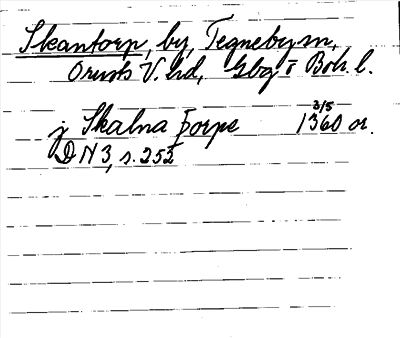 Skantorp, by, Tegneby sn,
Orusts V. hd, Gbg o Boh. l.
3/5
j Skalna Þorpe 1360 or.
DN 3, s. 252